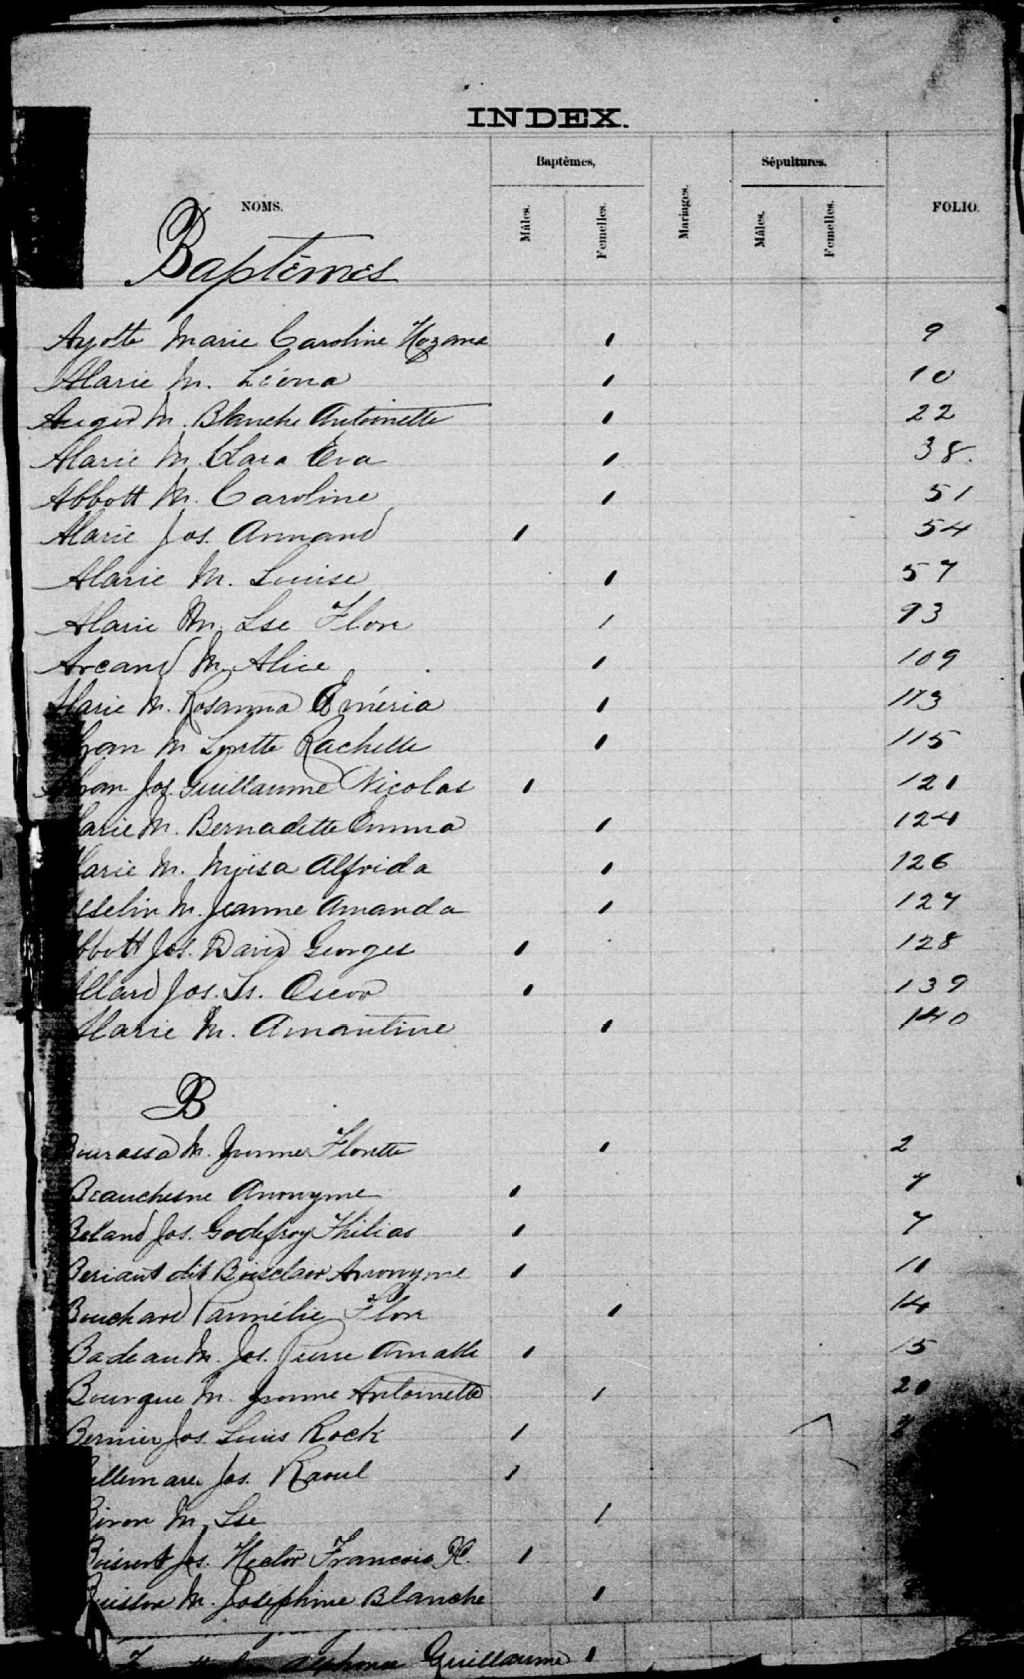 INDEX.
NOMS.
Baptêmes,
Mariages.
Sépultures.
FOLIO.
Mâles.
Femelles.
Mâles.
Femelles.
Baptêmes
Ayotte Marie Caroline Hozana 1 9
Alarie M. Léona 1 10
Auger M. Blanche Antoinette 1 22
Alarie M. Clara Eva 1 38.
Abbott M. Caroline 1 51
Alarie Jos. Armand 1 54
Alarie M. Louise 1 57
Alarie M. Lse Flore 1 93
Arcand M. Alice 1 109
Alarie M. Rosanna Eméria 1 113
M Lynette Rachelle 1 115
Jos. Guillaume Nicolas 1 121
Alarie M. Bernadette Emma 1 124
Alarie M. Alfrida 1 126
Asselin M. Jeanne Amanda 1 127
Abbott Jos. David Georges 1 128
Allard Jos. Ls. Oscar 1 139
Alarie M. Amantine 1 140
B
Bourassa M. Yvonne Florette 1 2
Beauchesne Anonyme 1 7
Beland Jos. Godefroy Philias 1 7
dit Boisclair Anonyme 1 11
Bouchard Parmélie Flore 1 14
Badeau M. Jos. Pierre 1 15
Bourque M. Yvonne Antoinette 1 20
Bernier Jos. Louis Rock 1
Bellemare Jos. Raoul 1
Biron M. Lse 1
Boisvert Jos. Hector François X. 1
M. Josephine Blanche 1
Alphonse Guillaume 1